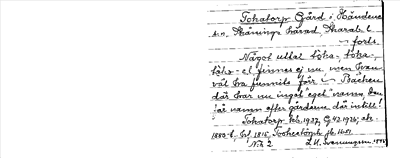 Tokatorp Gård i Händene
s:n. Skånings härad Skarab. l.
forts.
Något uttal töka-, toka-,
töke- el. finnes ej nu men kan
väl ha funnits förr i Bäcken
där har nu inget "eget" namn, den
har namn efter gårdarna där intill!
Tokatorp feb. 1937, G.V2.1926; ek.
1880-t, Gsl 1815, Toohestorph jb. 1651.
N:r 2 L.H. Svenungsson